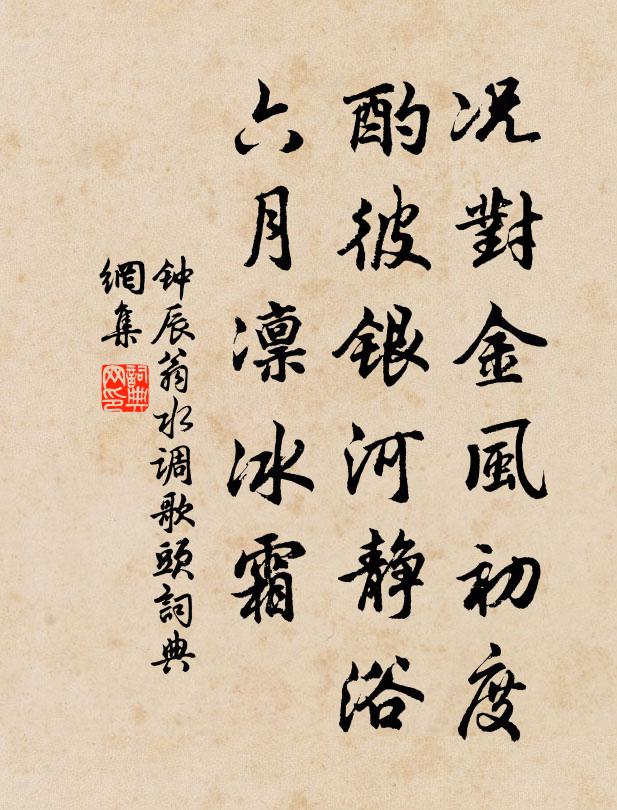 况對金風初度
酌彼銀河静浴
六月凛冰霜
钟辰翁水调歌頭詞典
網集
詞典
网印